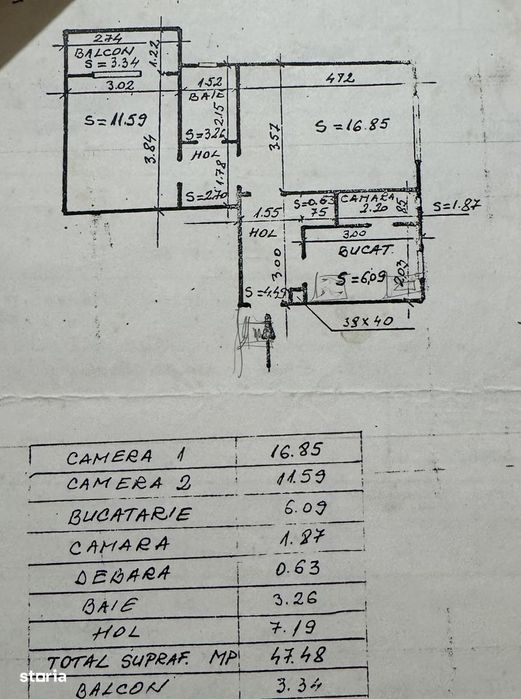 2.74
BALCON
S = 3.34
1.22
3.02
1.52
4.72
BAIE
S = 11.59
3.84
2.15
S = 3.26
HOL
3.57
S = 16.85
1.78
S = 2.70
S = 0.63
75
CAMARA
2.20
.85
S = 1.87
1.55
HOL
3.00
BUCAT.
3.00
S = 6.09
2.03
S = 4.49
38 x 40
CAMERA 1 16.85
CAMERA 2 11.59
BUCATARIE 6.09
CAMARA 1.87
DEBARA 0.63
BAIE 3.26
HOL 7.19
TOTAL SUPRAF. MP 47.48
BALCON 3.34
storia